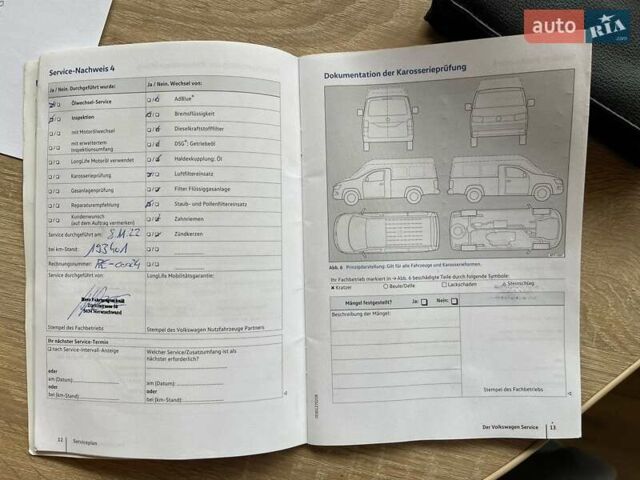 auto RIA.com
Service-Nachweis 4
Ja / Nein. Durchgeführt wurde:
Ölwechsel-Service
Inspektion
mit Motorölwechsel
mit erweitertem
Inspektionsumfang
LongLife Motoröl verwendet
Karosserieprüfung
Gasanlagenprüfung
Reparaturempfehlung
Kundenwunsch
(auf dem Auftrag vermerken)
Service durchgeführt am: 8.11.22
bei km-Stand: 193401
Rechnungsnummer:
Service durchgeführt von:
Stempel des Fachbetriebs
Ja / Nein. Wechsel von:
AdBlue®
Bremsflüssigkeit
Dieselkraftstofffilter
DSG®: Getriebeöl
Haldexkupplung: Öl
Luftfiltereinsatz
Filter Flüssiggasanlage
Staub- und Pollenfiltereinsatz
Zahnriemen
Zündkerzen
LongLife Mobilitätsgarantie:
Stempel des Volkswagen Nutzfahrzeuge Partners
Ihr nächster Service-Termin
nach Service-Intervall-Anzeige
oder
am (Datum):
oder
bei (km-Stand):
Welcher Service/Zusatzumfang ist als
nächster erforderlich?
am (Datum):
oder
bei (km-Stand):
12 Serviceplan
Dokumentation der Karosserieprüfung
Abb. 6 Prinzipdarstellung: Gilt für alle Fahrzeuge und Karosserieformen.
Ihr Fahrbetrieb markiert in → Abb. 6 beschädigte Teile durch folgende Symbole:
× Kratzer ○ Beule/Delle □ Lackschaden △ Steinschlag
Mängel festgestellt? Ja: Nein:
Beschreibung der Mängel:
Stempel des Fachbetriebs
Der Volkswagen Service 13